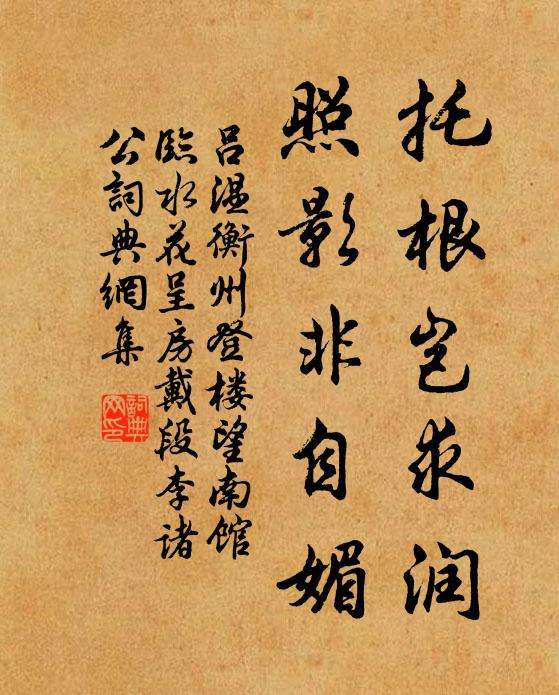 托根岂求润
照影非自媚
吕温衡州登楼望南馆
临水花呈房戴段李诸
公詞典網集
詞典网印